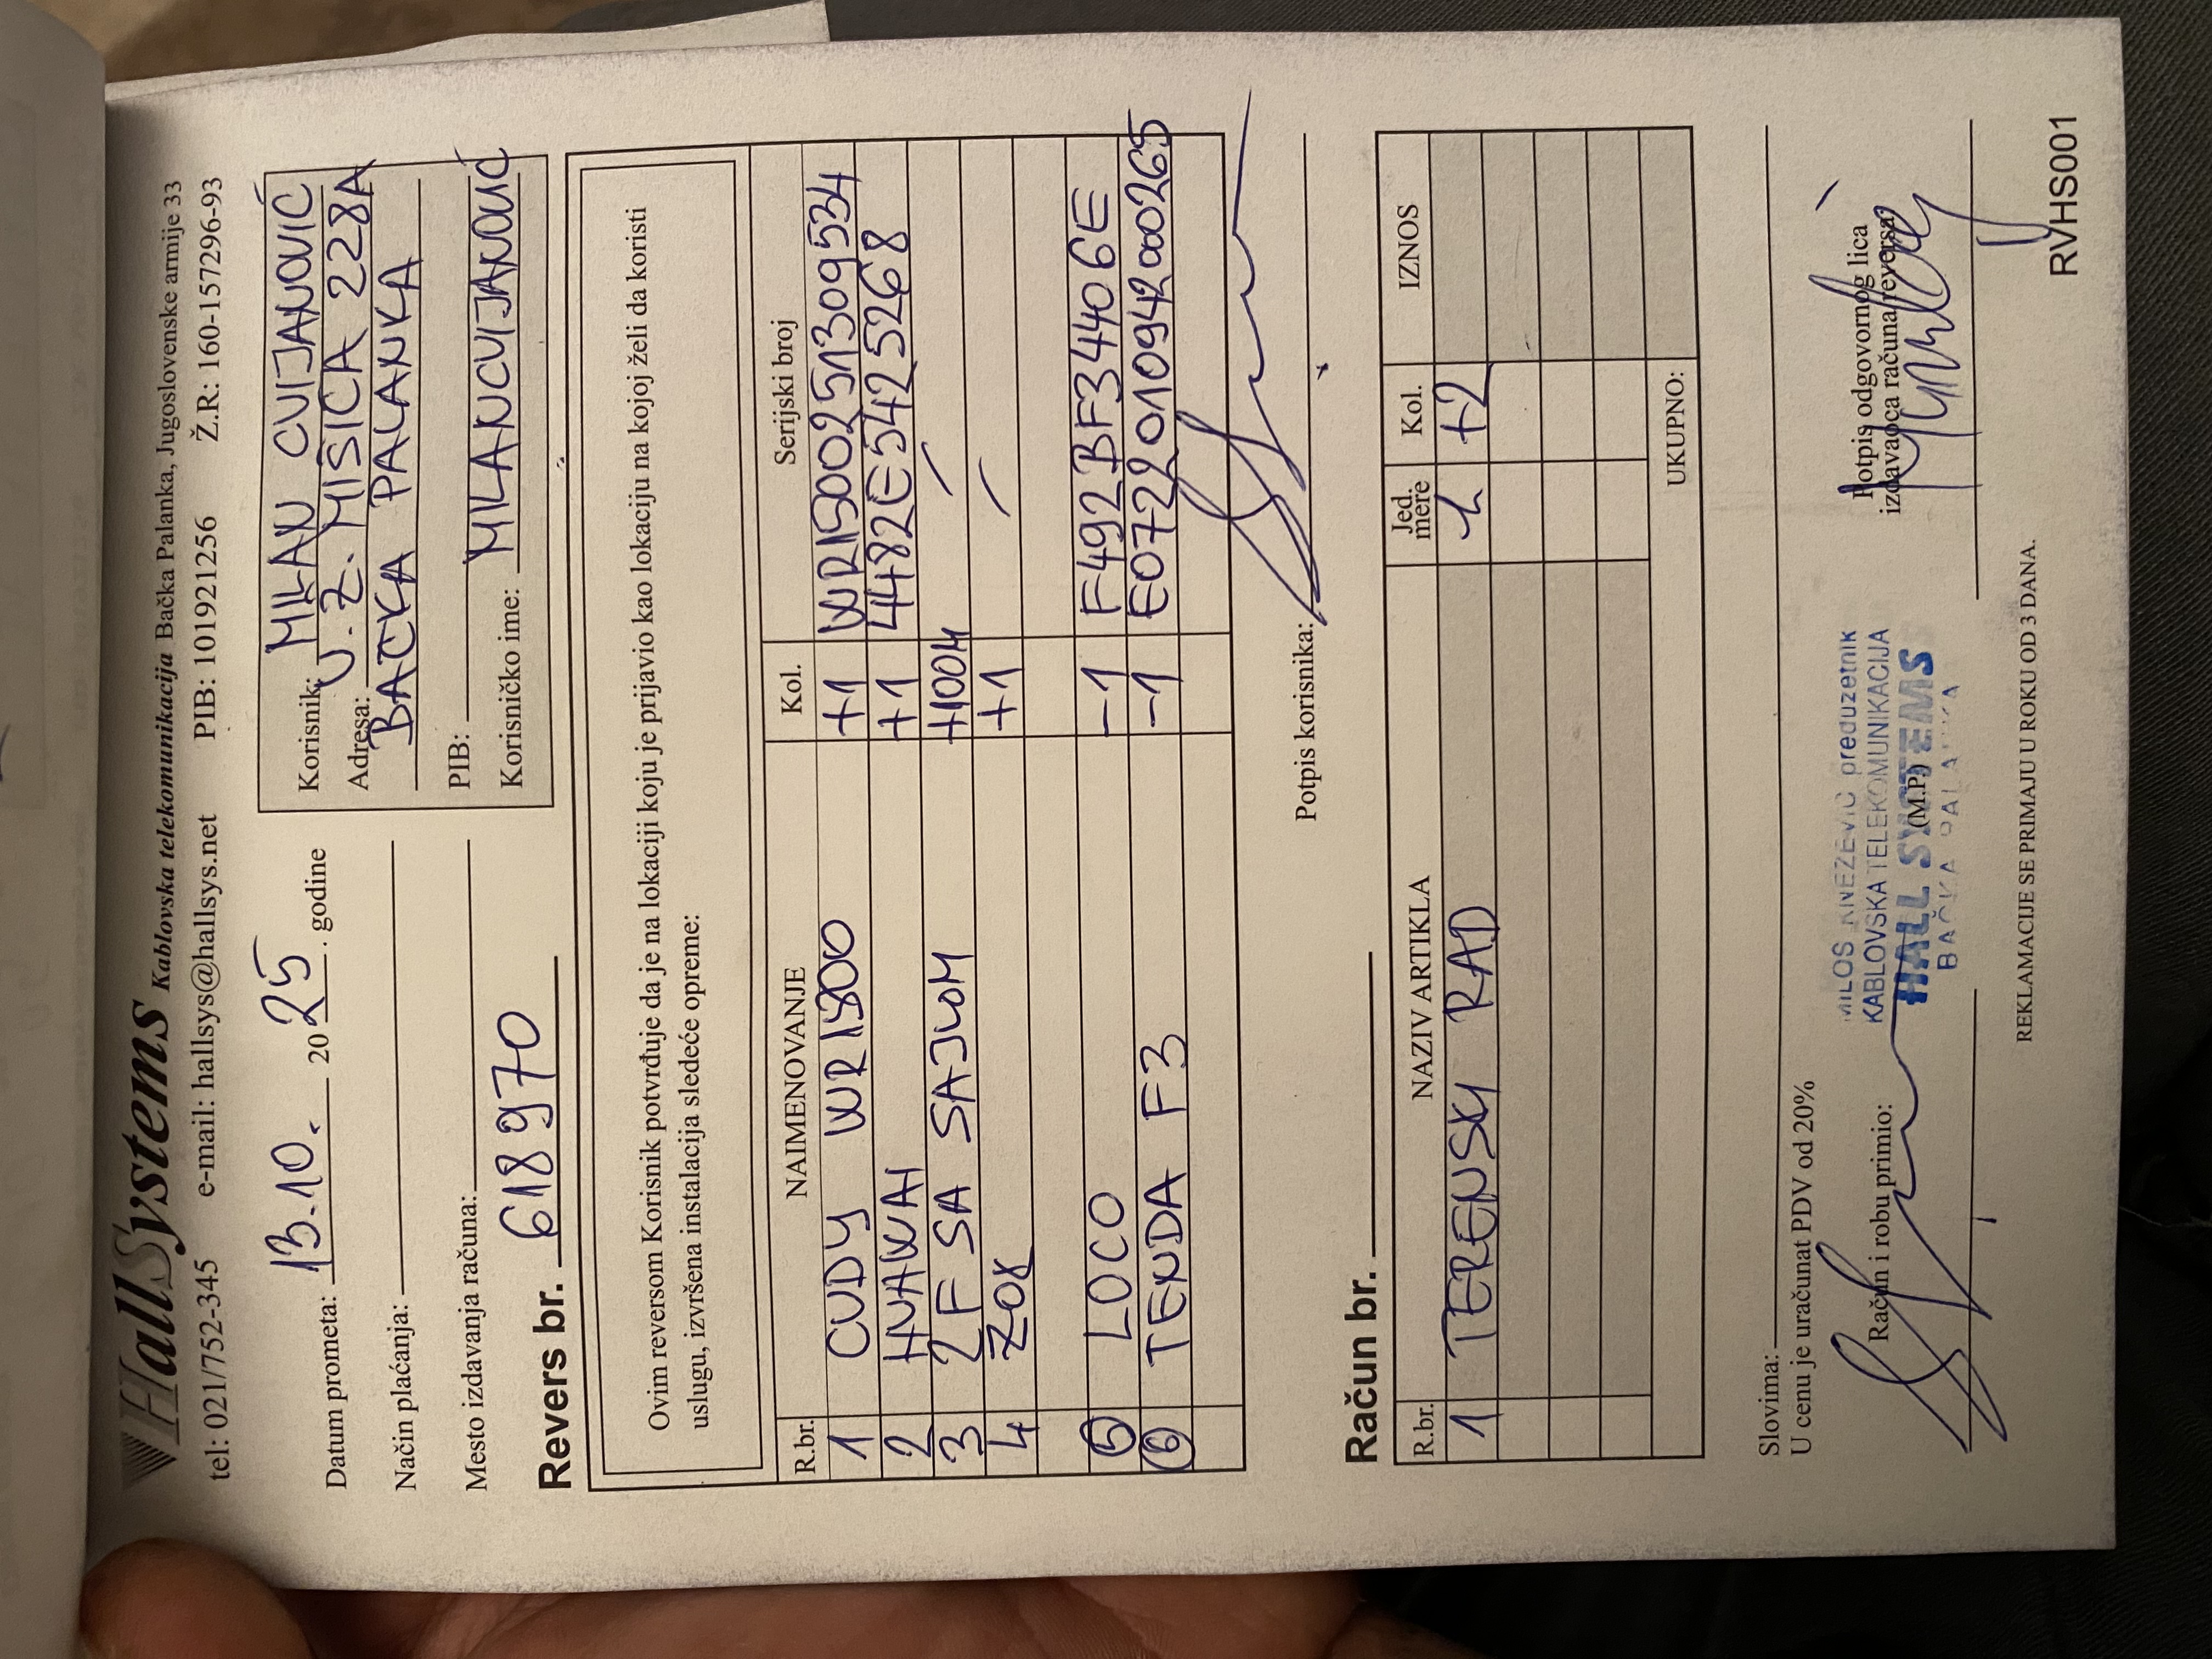 HallSystems Kablovska telekomunikacija Bačka Palanka, Jugoslovenske armije 33
tel: 021/752-345 e-mail: hallsys@hallsys.net PIB: 101921256 Ž.R: 160-157296-93
Datum prometa: 13.10. 2025. godine
Način plaćanja:
Mesto izdavanja računa:
Korisnik: MILAN CVIJANOVIĆ
Adresa: V. Ž. MIŠIĆA 228A
BAČKA PALANKA
PIB:
Korisničko ime: MILANCVIJANOVIĆ
Revers br. 618970
Ovim reversom Korisnik potvrđuje da je na lokaciji koju je prijavio kao lokaciju na kojoj želi da koristi
uslugu, izvršena instalacija sledeće opreme:
R.br. NAIMENOVANJE Kol. Serijski broj
1 CUDY WR1300 +1 WR15002513109534
2 HUAWAI +1 4482E5425268
3 2F SA SAJLOM +100M /
4 ZOK +1 /
5 LOCO -1 F492BF34406E
6 TENDA F3 -1 E0722010942000265
Potpis korisnika:
Račun br.
R.br. NAZIV ARTIKLA Jed. mere Kol. IZNOS
1 TERENSKI RAD h +2
UKUPNO:
Slovima:
U cenu je uračunat PDV od 20%
Račun i robu primio:
MILOŠ KNEŽEVIĆ preduzetnik
KABLOVSKA TELEKOMUNIKACIJA
HALL SYSTEMS
(M.P.)
BAČKA PALANKA
Potpis odgovornog lica
izdavaoca računa/reversa:
REKLAMACIJE SE PRIMAJU U ROKU OD 3 DANA.
RVHS001